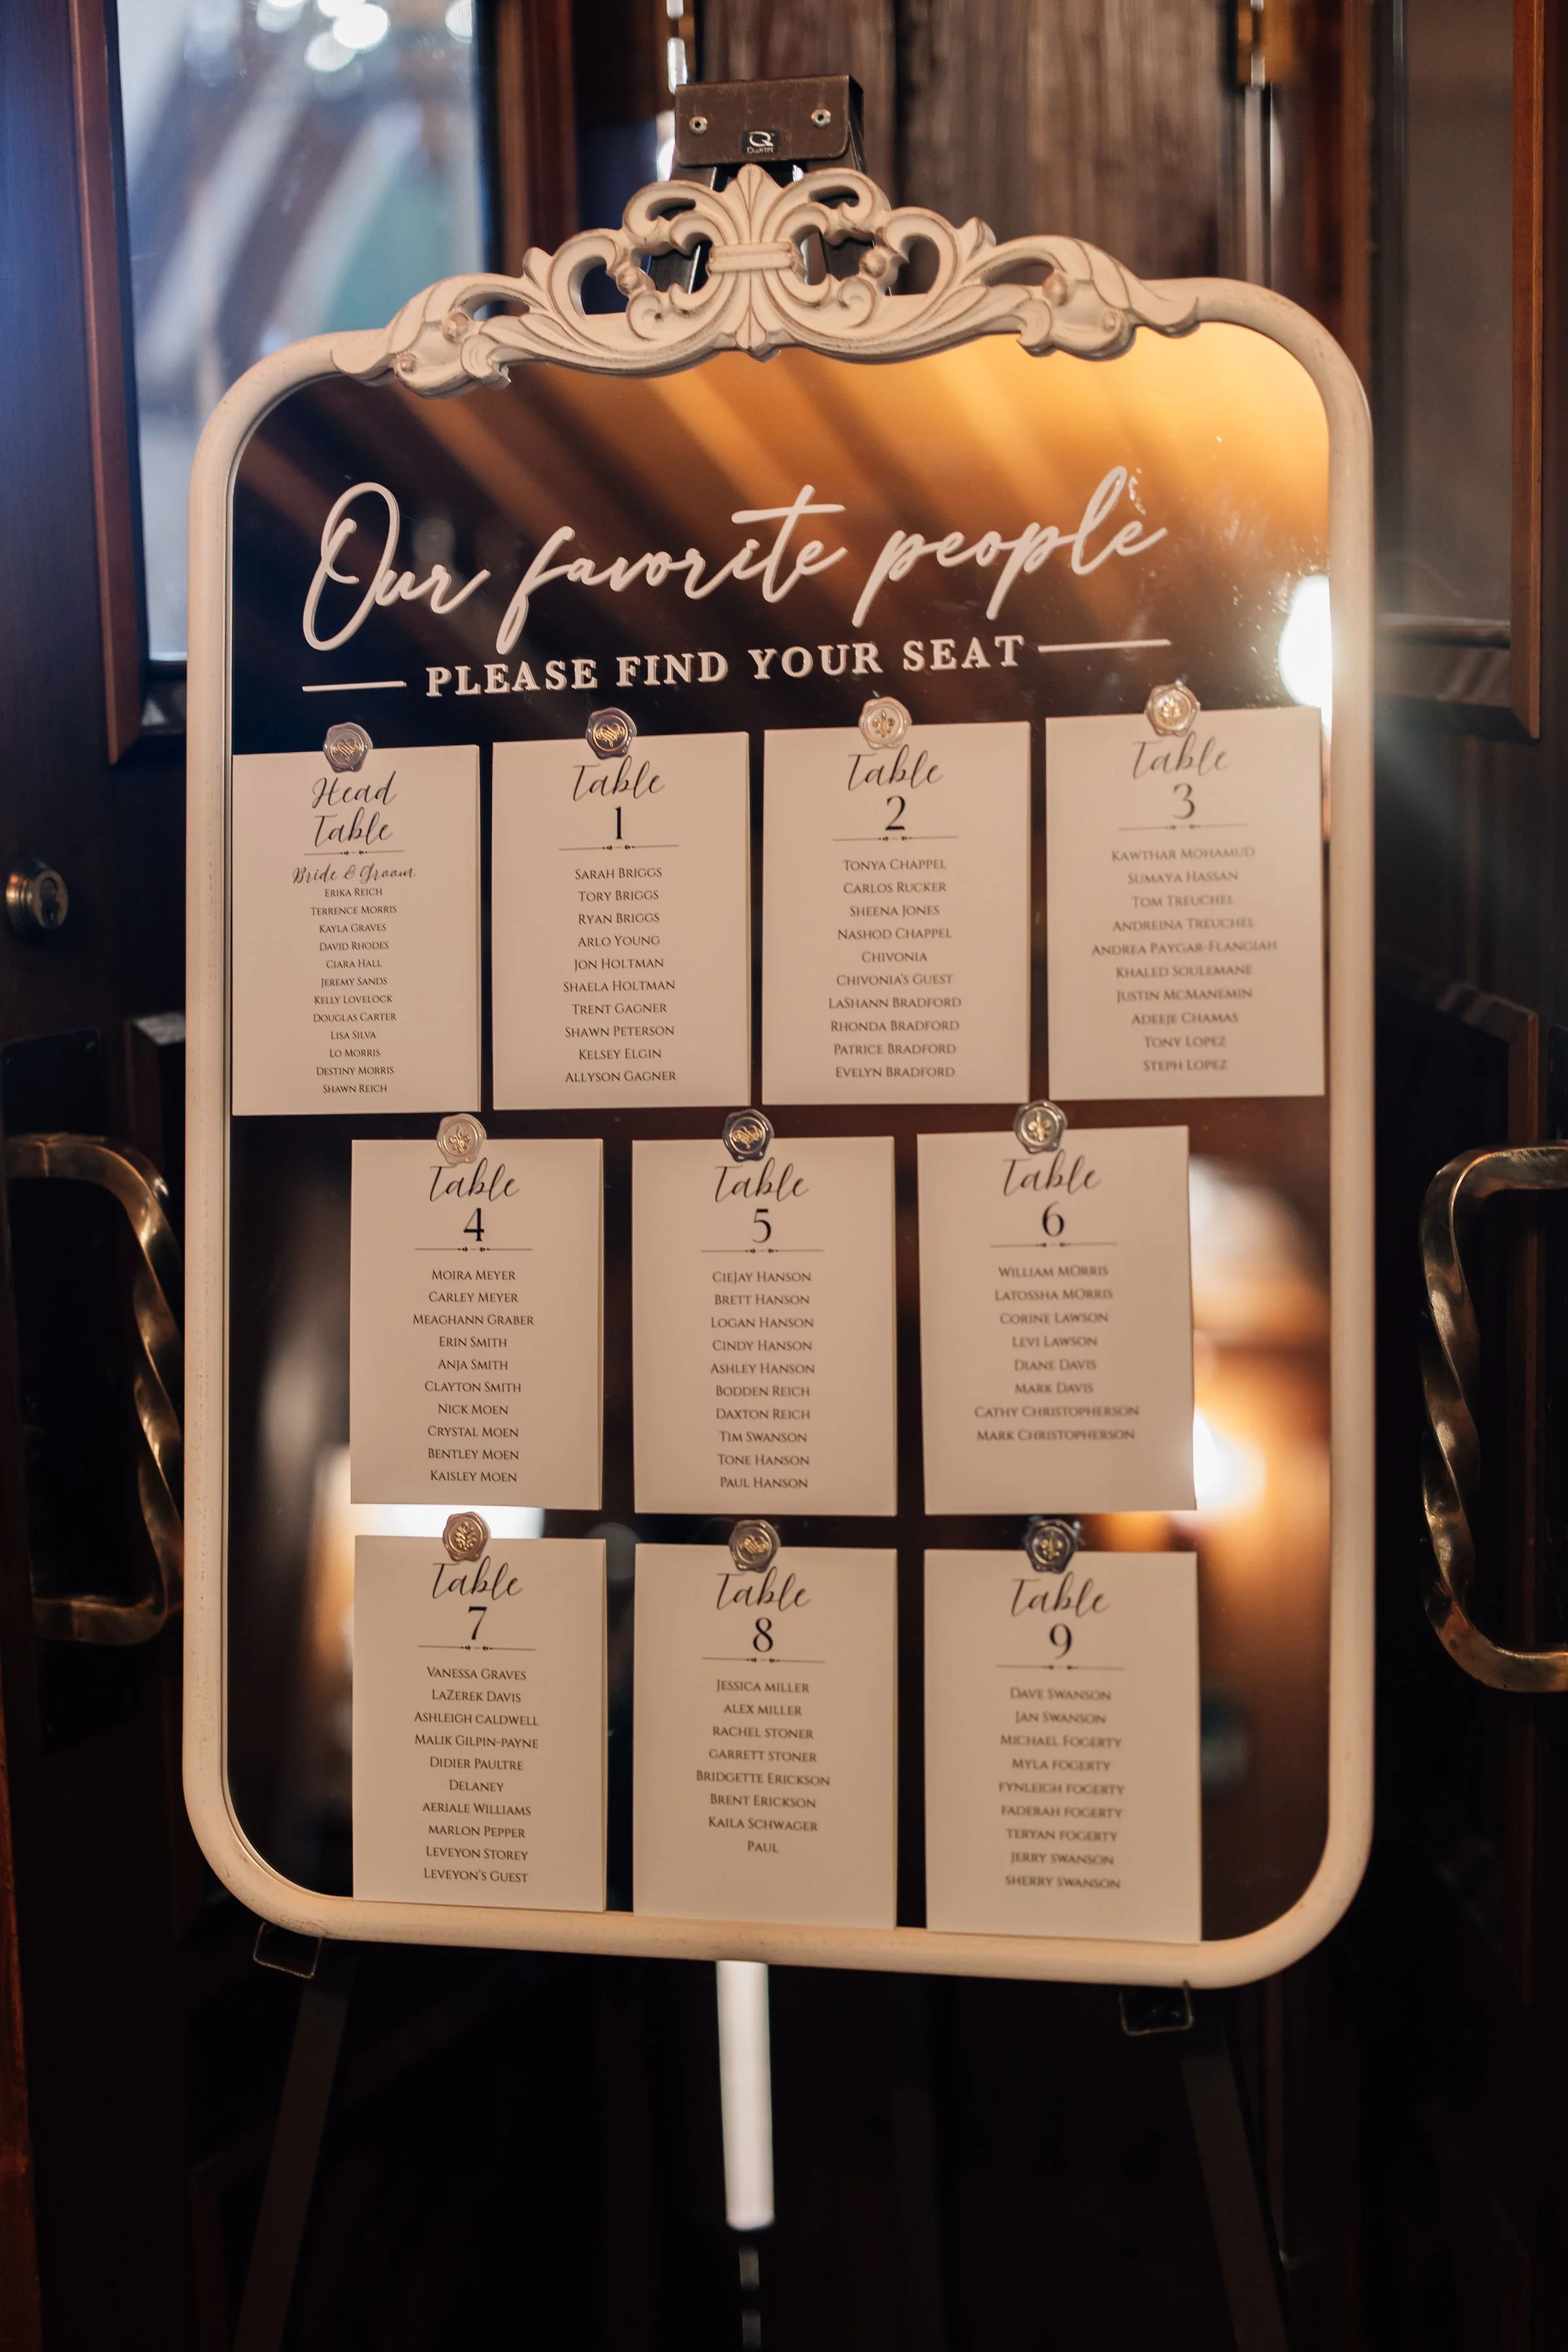 Quartet
Our favorite people
PLEASE FIND YOUR SEAT
Head
Table
Bride & Groom
ERIKA REICH
TERRENCE MORRIS
KAYLA GRAVES
DAVID RHODES
CIARA HALL
JEREMY SANDS
KELLY LOVELOCK
DOUGLAS CARTER
LISA SILVA
LO MORRIS
DESTINY MORRIS
SHAWN REICH
Table
1
SARAH BRIGGS
TORY BRIGGS
RYAN BRIGGS
ARLO YOUNG
JON HOLTMAN
SHAELA HOLTMAN
TRENT GAGNER
SHAWN PETERSON
KELSEY ELGIN
ALLYSON GAGNER
Table
2
TONYA CHAPPEL
CARLOS RUCKER
SHEENA JONES
NASHOD CHAPPEL
CHIVONIA
CHIVONIA'S GUEST
LASHANN BRADFORD
RHONDA BRADFORD
PATRICE BRADFORD
EVELYN BRADFORD
Table
3
KAWTHAR MOHAMUD
SUMAYA HASSAN
TOM TREUCHEL
ANDREINA TREUCHEL
ANDREA PAYGAR-FLANGIAH
KHALED SOULEMANE
JUSTIN MCMANEMIN
ADEEJE CHAMAS
TONY LOPEZ
STEPH LOPEZ
Table
4
MOIRA MEYER
CARLEY MEYER
MEAGHANN GRABER
ERIN SMITH
ANJA SMITH
CLAYTON SMITH
NICK MOEN
CRYSTAL MOEN
BENTLEY MOEN
KAISLEY MOEN
Table
5
CIEJAY HANSON
BRETT HANSON
LOGAN HANSON
CINDY HANSON
ASHLEY HANSON
BODDEN REICH
DAXTON REICH
TIM SWANSON
TONE HANSON
PAUL HANSON
Table
6
WILLIAM MORRIS
LATOSSHA MORRIS
CORINE LAWSON
LEVI LAWSON
DIANE DAVIS
MARK DAVIS
CATHY CHRISTOPHERSON
MARK CHRISTOPHERSON
Table
7
VANESSA GRAVES
LAZEREK DAVIS
ASHLEIGH CALDWELL
MALIK GILPIN-PAYNE
DIDIER PAULTRE
DELANEY
AERIALE WILLIAMS
MARLON PEPPER
LEVEYON STOREY
LEVEYON'S GUEST
Table
8
JESSICA MILLER
ALEX MILLER
RACHEL STONER
GARRETT STONER
BRIDGETTE ERICKSON
BRENT ERICKSON
KAILA SCHWAGER
PAUL
Table
9
DAVE SWANSON
JAN SWANSON
MICHAEL FOGERTY
MYLA FOGERTY
FYNLEIGH FOGERTY
FADERAH FOGERTY
TERYAN FOGERTY
JERRY SWANSON
SHERRY SWANSON